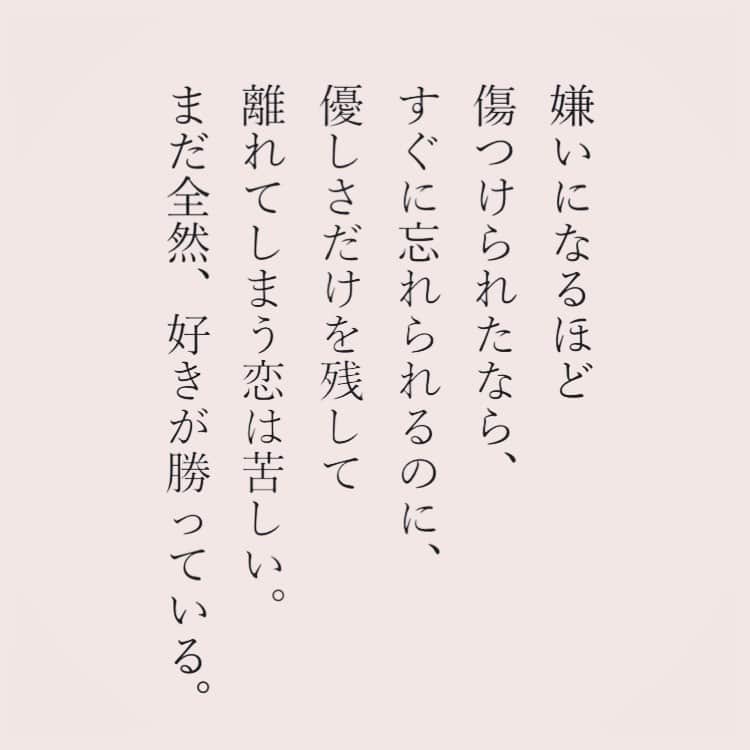 嫌いになるほど
傷つけられたなら、
すぐに忘れられるのに、
優しさだけを残して
離れてしまう恋は苦しい。
まだ全然、好きが勝っている。